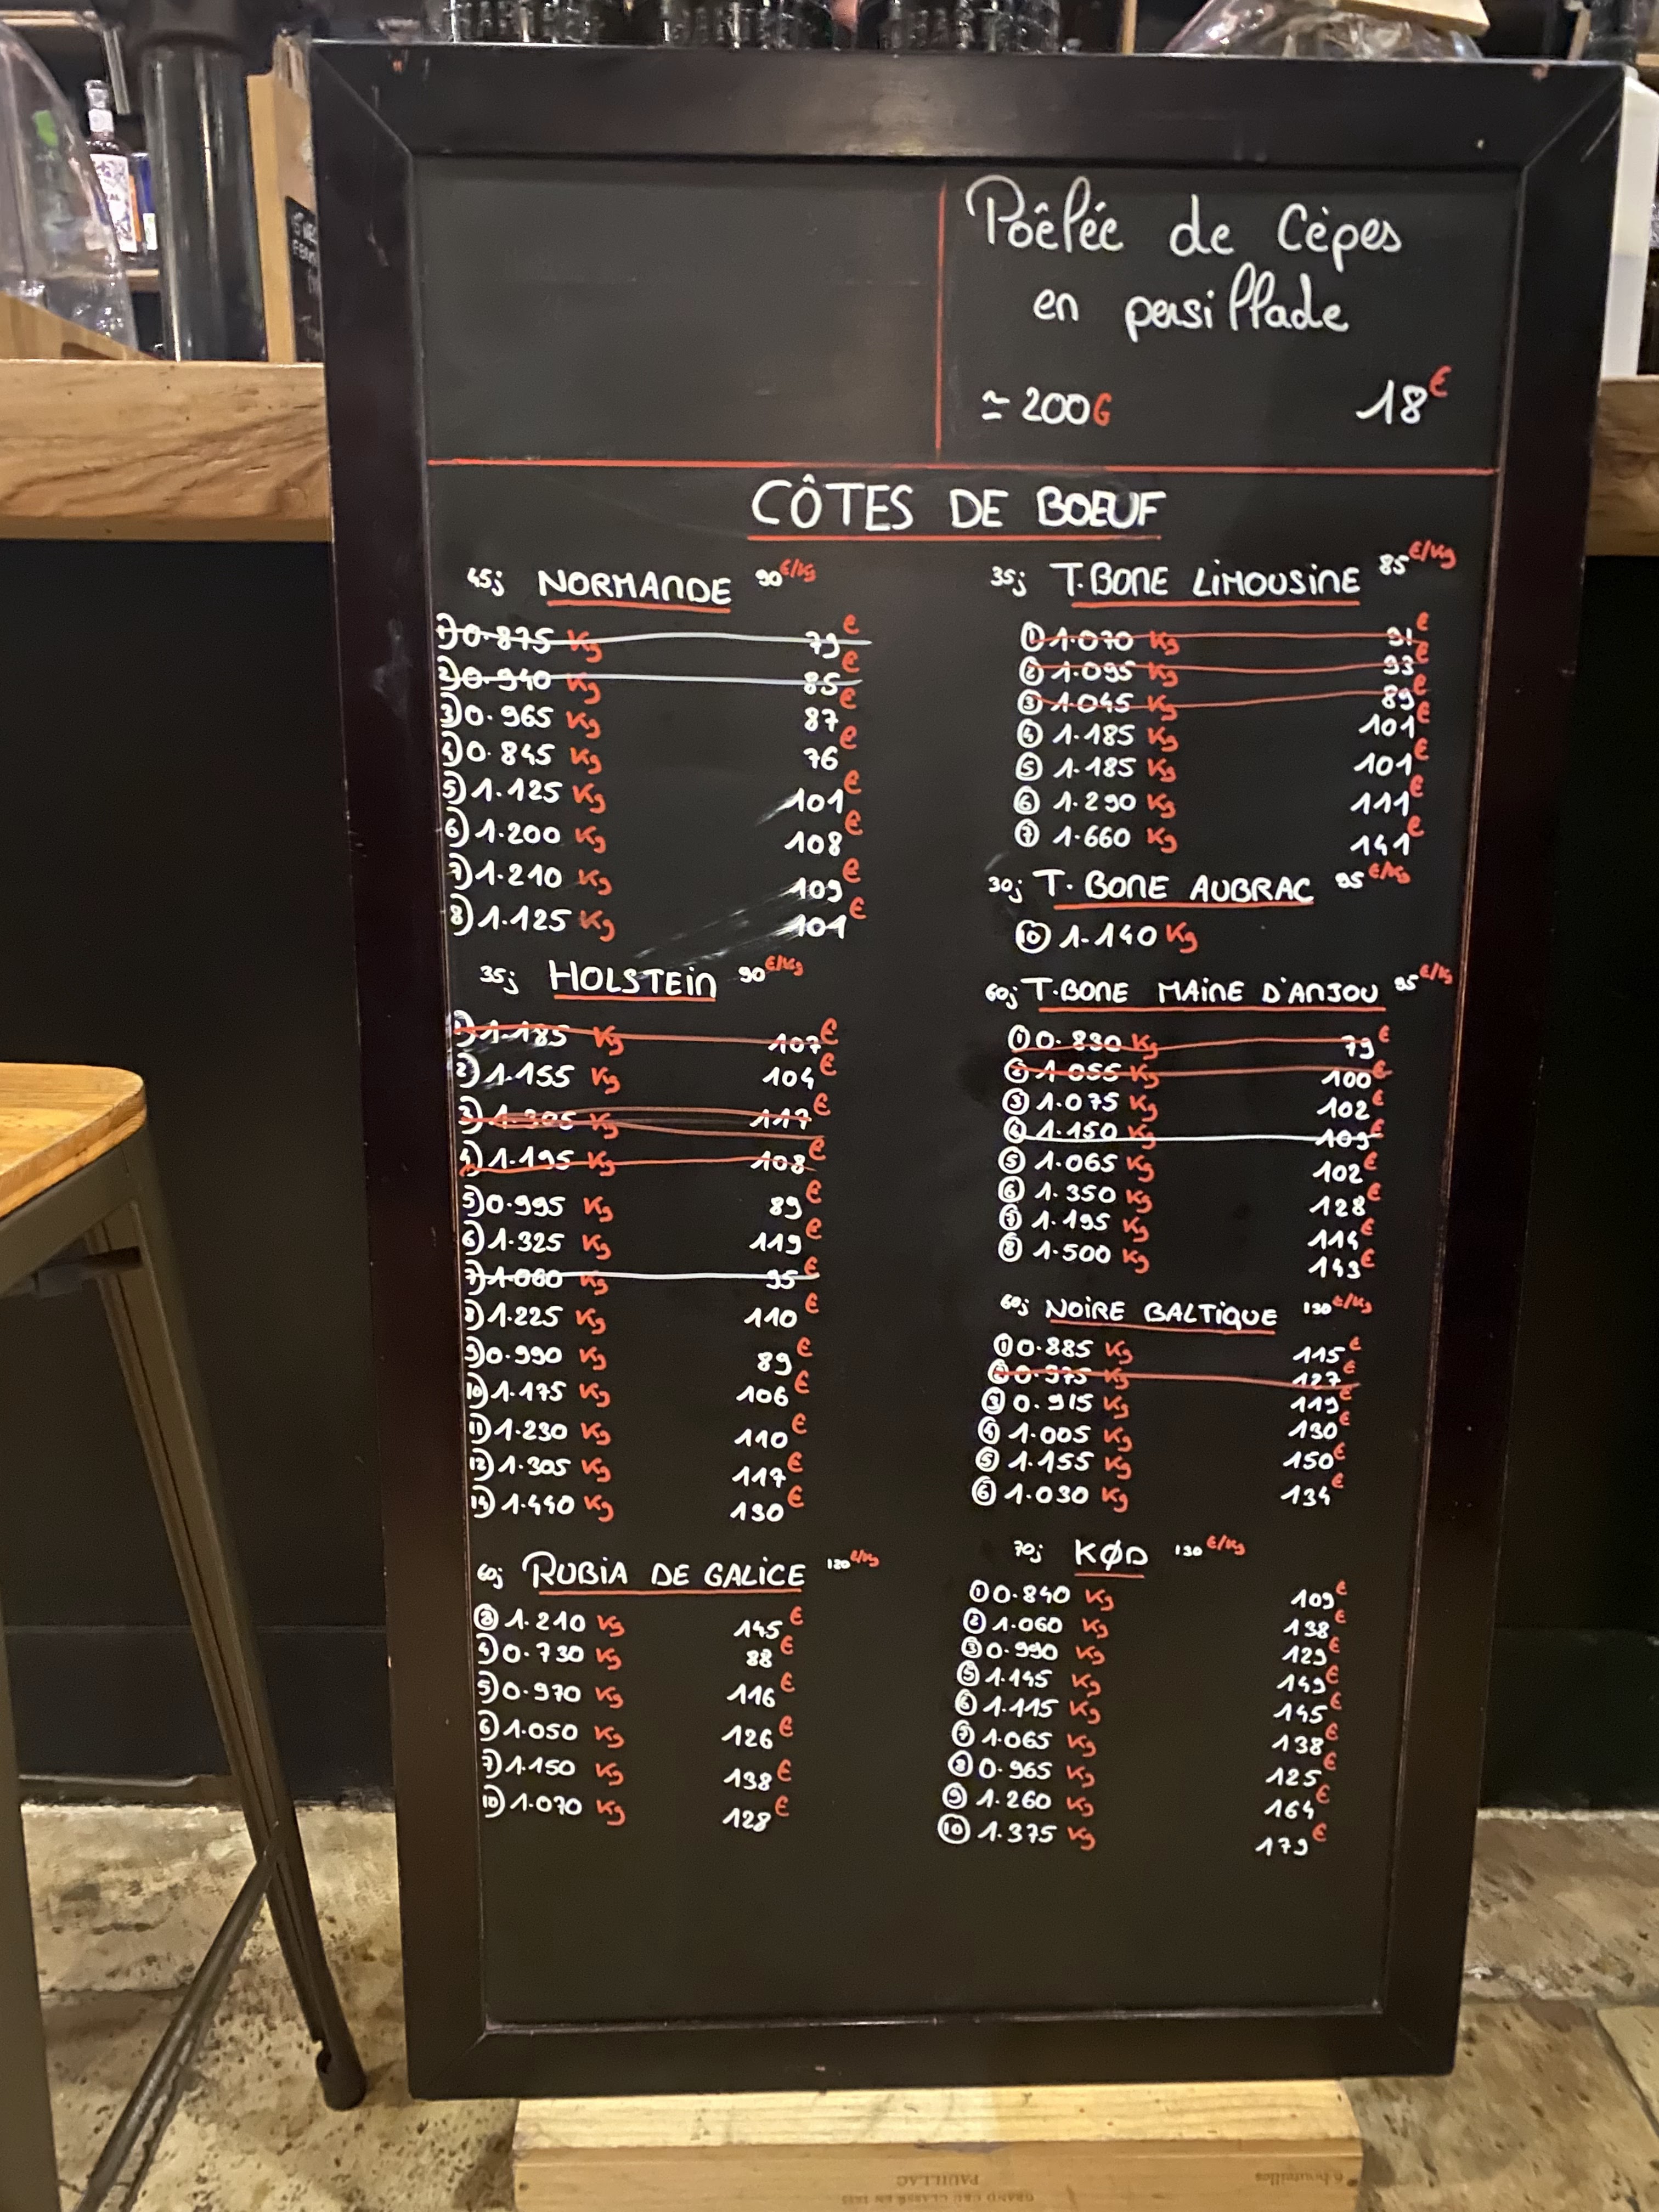 Poêlée de Cèpes
en persillade
≃ 200G 18€
CÔTES DE BOEUF
45j NORMANDE 90€/Kg
① 0.875 Kg 79€
② 0.940 Kg 85€
③ 0.965 Kg 87€
④ 0.845 Kg 76€
⑤ 1.125 Kg 101€
⑥ 1.200 Kg 108€
⑦ 1.210 Kg 109€
⑧ 1.125 Kg 101€
35j HOLSTEIN 90€/Kg
1.185 Kg 107€
② 1.155 Kg 104€
③ 1.305 Kg 117€
④ 1.195 Kg 108€
⑤ 0.995 Kg 89€
⑥ 1.325 Kg 119€
⑦ 1.060 Kg 95€
⑧ 1.225 Kg 110€
⑨ 0.990 Kg 89€
⑩ 1.175 Kg 106€
⑪ 1.230 Kg 110€
⑫ 1.305 Kg 117€
⑭ 1.440 Kg 130€
60j RUBIA DE GALICE 120€/Kg
③ 1.210 Kg 145€
④ 0.730 Kg 88€
⑤ 0.970 Kg 116€
⑥ 1.050 Kg 126€
⑦ 1.150 Kg 138€
⑩ 1.070 Kg 128€
35j T.BONE LIMOUSINE 85€/Kg
① 1.070 Kg 91€
② 1.095 Kg 93€
③ 1.045 Kg 89€
④ 1.185 Kg 101€
⑤ 1.185 Kg 101€
⑥ 1.290 Kg 111€
⑦ 1.660 Kg 141€
30j T.BONE AUBRAC 95€/Kg
⑩ 1.140 Kg
60j T.BONE MAINE D'ANJOU 95€/Kg
① 0.830 Kg 79€
② 1.055 Kg 100€
③ 1.075 Kg 102€
④ 1.150 Kg 109€
⑤ 1.065 Kg 102€
⑥ 1.350 Kg 128€
⑦ 1.195 Kg 114€
⑧ 1.500 Kg 143€
60j NOIRE BALTIQUE 130€/Kg
① 0.885 Kg 115€
② 0.975 Kg 127€
③ 0.915 Kg 119€
④ 1.005 Kg 130€
⑤ 1.155 Kg 150€
⑥ 1.030 Kg 134€
70j KØD 130€/Kg
① 0.840 Kg 109€
② 1.060 Kg 138€
③ 0.990 Kg 129€
⑤ 1.145 Kg 149€
⑥ 1.115 Kg 145€
⑦ 1.065 Kg 138€
⑧ 0.965 Kg 125€
⑨ 1.260 Kg 164€
⑩ 1.375 Kg 179€
6 bouteilles
PAUILLAC
GRAND CRU CLASSÉ EN 1855